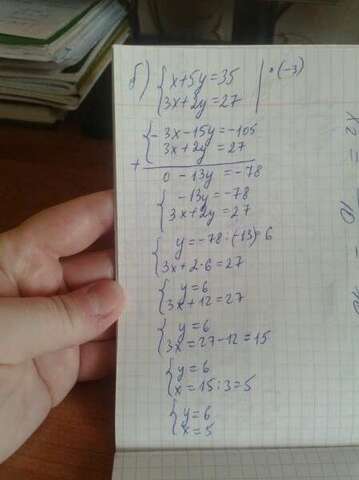 б) { x+5y=35 | •(-3)
{ 3x+2y=27
+ { -3x-15y=-105
{ 3x+2y=27
0-13y=-78
{ -13y=-78
{ 3x+2y=27
{ y=-78:(-13)=6
{ 3x+2·6=27
{ y=6
{ 3x+12=27
{ y=6
{ 3x=27-12=15
{ y=6
{ x=15:3=5
{ y=6
{ x=5